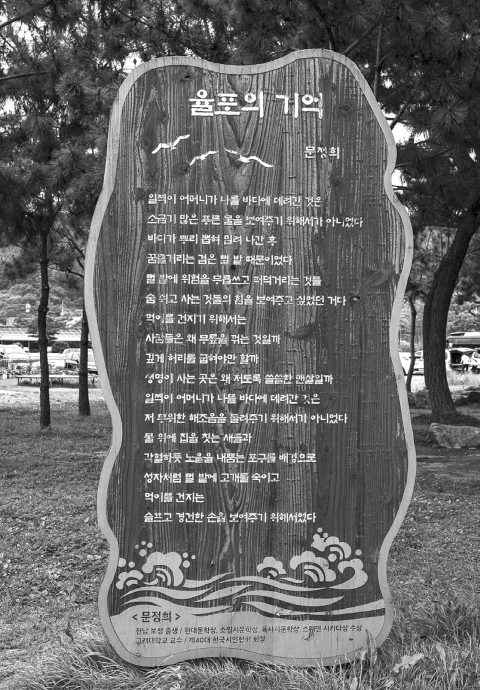 율포의 기억
문정희
일찍이 어머니가 나를 바다에 데려간 것은
소금기 많은 푸른 물을 보여주기 위해서가 아니었다
바다가 뿌리 뽑혀 밀려 나간 후
꿈틀거리는 검은 뻘 밭 때문이었다
뻘 밭에 위험을 무릅쓰고 퍼덕거리는 것들
숨 쉬고 사는 것들의 힘을 보여주고 싶었던 거다
먹이를 건지기 위해서는
사람들은 왜 무릎을 꺾는 것일까
깊게 허리를 굽혀야만 할까
생명이 사는 곳은 왜 저토록 쓸쓸한 맨살일까
일찍이 어머니가 나를 바다에 데려간 것은
저 무위한 해조음을 들려주기 위해서가 아니었다
물 위에 집을 짓는 새들과
각혈하듯 노을을 내뿜는 포구를 배경으로
성자처럼 뻘 밭에 고개를 숙이고
먹이를 건지는
슬프고 경건한 손을 보여주기 위해서였다
< 문정희 >
전남 보성 출생 / 현대문학상, 소월시문학상, 육사시문학상, 스웨덴 시카다상 수상
고려대학교 교수 / 제40대 한국시인협회 회장